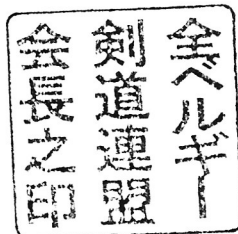 全ベルギー
剣道連盟
会長之印